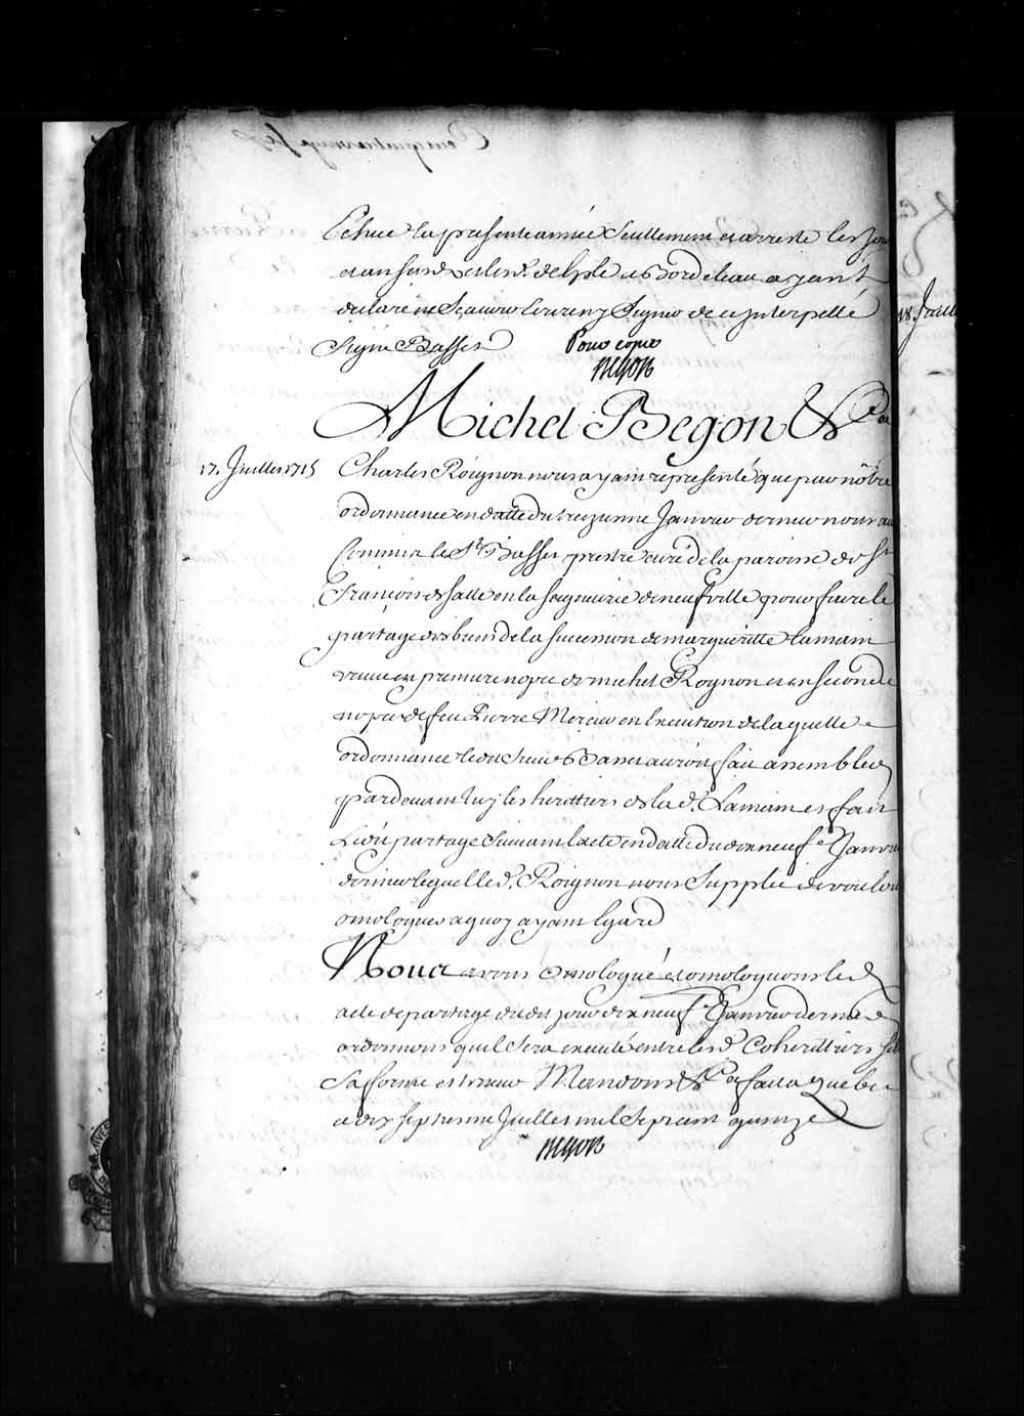 Echue la presente année Seullement et arreste les jour
et an susd. et les d. Delisle et Bordeleau ayant
declaré ne Scavoir Escrire ny Signer de ce Interpellé
Signé Basset Pour copie
Begon
Michel Begon &ca
17. Juillet 1715
Charles Roignon nous ayant representé que par nôtre
ordonnance en datte du treizieme Janvier dernier nous
Commis le Sr. Basset prestre curé de la paroisse de St
François de Salle en la Seigneurie de neufville pour faire le
partage des biens de la succession de margueritte Lamain
veuve en premiere nopce de michel Rognon et en seconde
nopce de feu Pierre Mercier en Execution de laquelle
ordonnance led. Sieur Basset auroit fait assembler
pardevant luy les herittiers de la d. Lamain et fait
Led. partage Suivant l'acte en datte du dix neufe Janvier
dernier lequel led. Roignon nous Supplie de vouloir
omologuer a quoy ayant Egard
Nous avons Omologué et omologuons led.
acte de partage du dit jour dix neufe Janvier dernier
ordonnons quil Sera executé entre lesd. Coherittiers Selon
Sa forme et teneur Mandons &ca fait a Quebec
le dix septieme Juillet mil Sept cent quinze
Begon
18. Juill